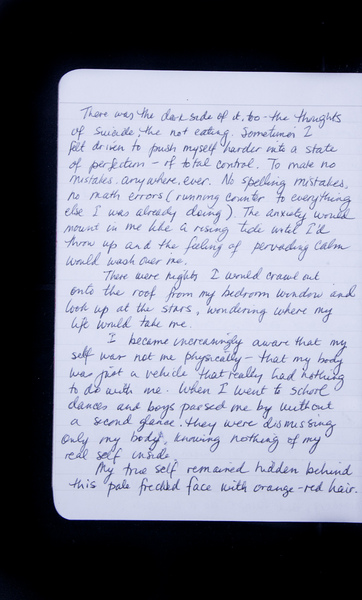 There was the dark side of it, too - the thoughts
of suicide, the not eating. Sometimes I
felt driven to push myself harder into a state
of perfection - of total control. To make no
mistakes, anywhere, ever. No spelling mistakes,
no math errors (running counter to everything
else I was already doing). The anxiety would
mount in me like a rising tide until I'd
throw up and the feeling of pervading calm
would wash over me.
There were nights I would crawl out
onto the roof from my bedroom window and
look up at the stars, wondering where my
life would take me.
I became increasingly aware that my
self was not me physically - that my body
was just a vehicle that really had nothing
to do with me. When I went to school
dances and boys passed me by without
a second glance, they were dismissing
only my body, knowing nothing of my
real self inside.
My true self remained hidden behind
this pale freckled face with orange-red hair.